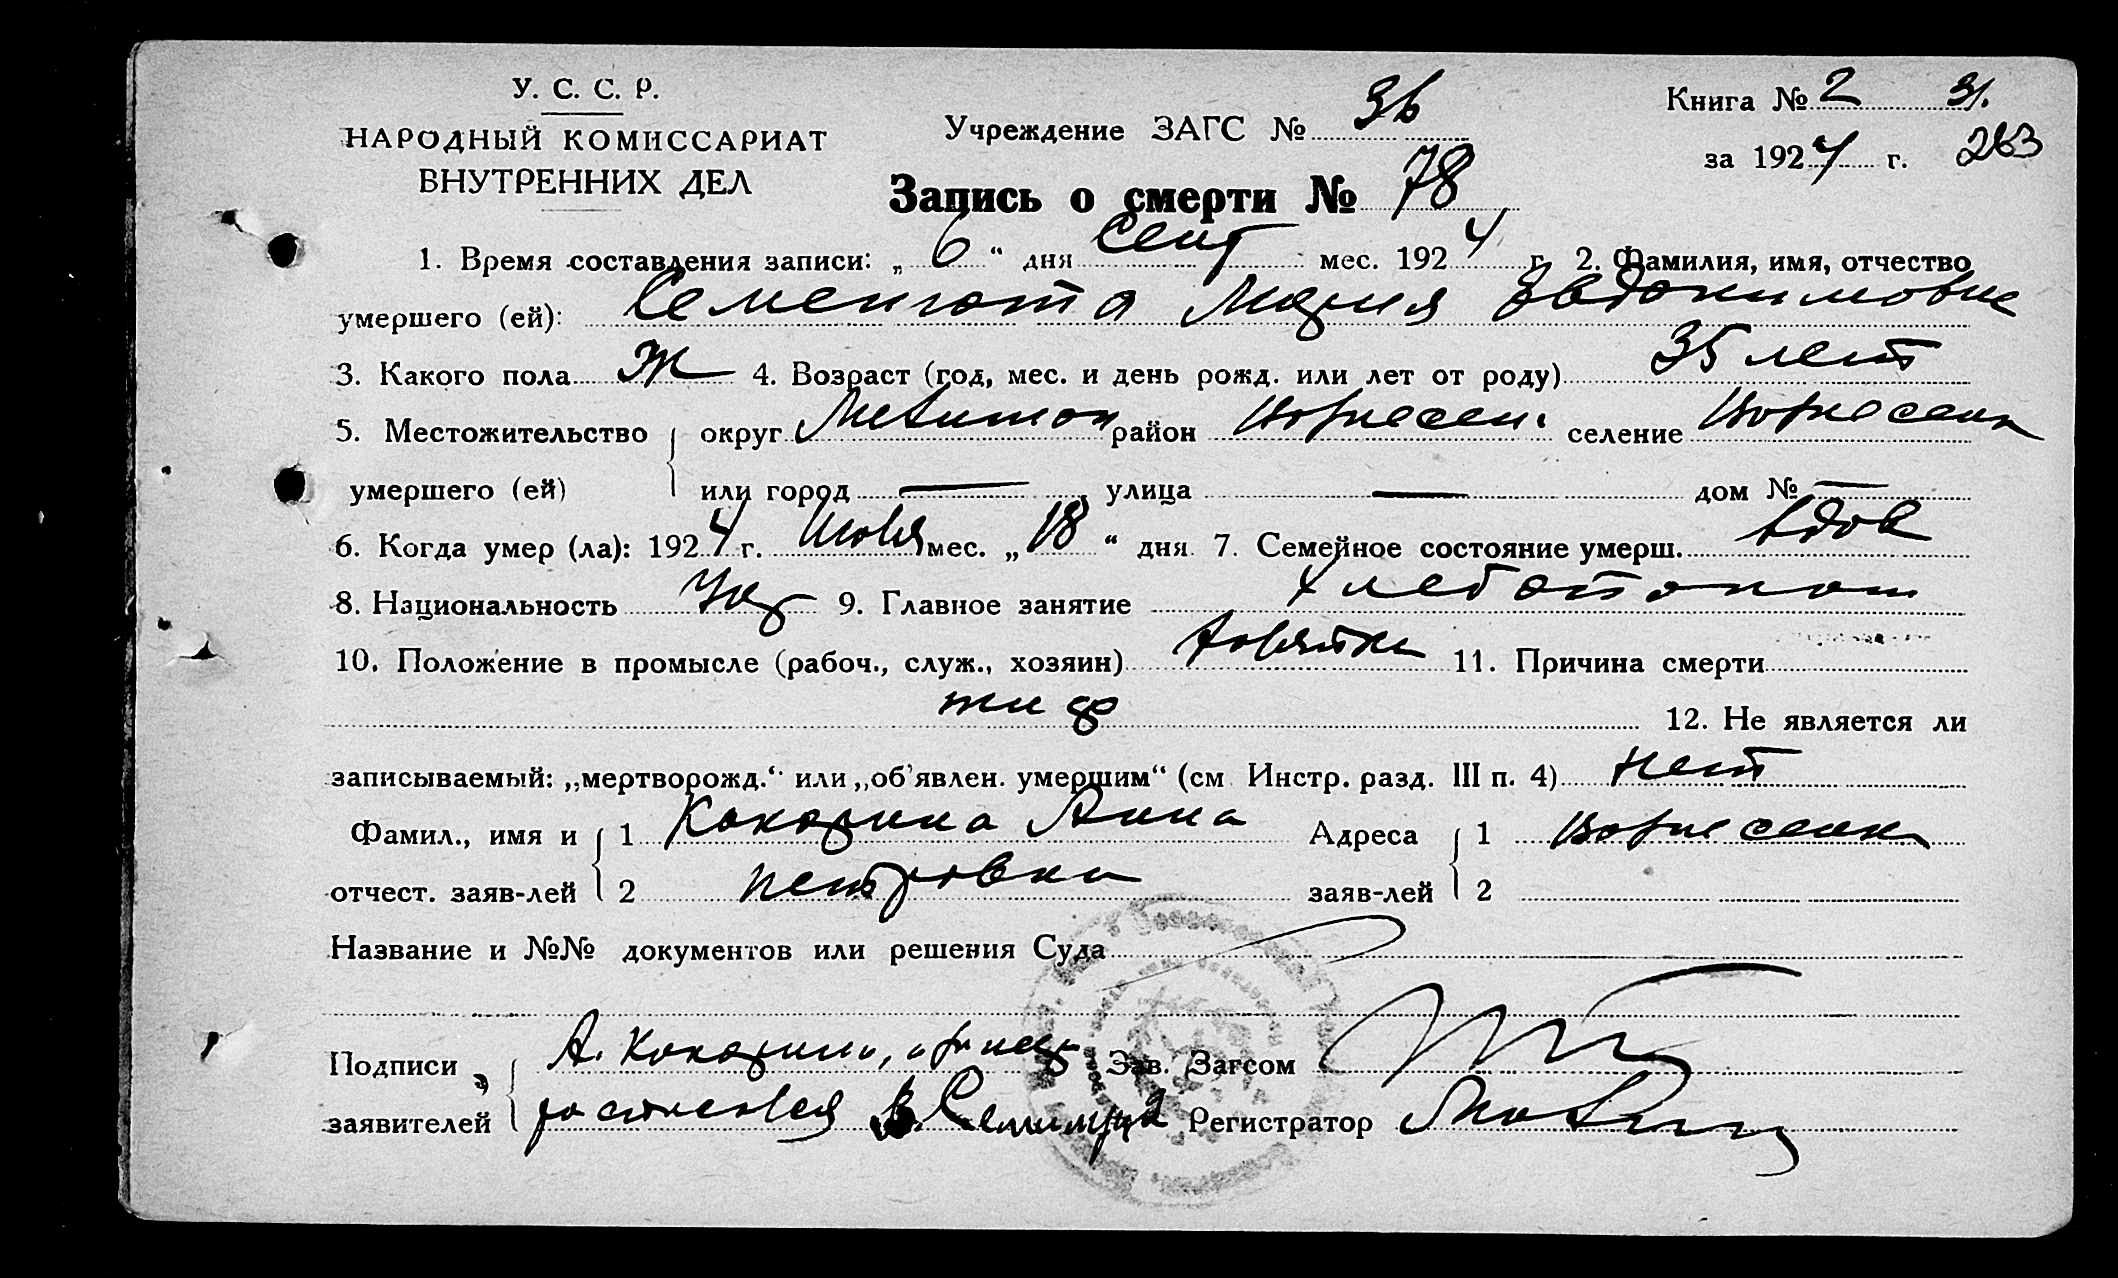 У. С. С. Р.
НАРОДНЫЙ КОМИССАРИАТ
ВНУТРЕННИХ ДЕЛ
Учреждение ЗАГС № 36
Книга № 2 31.
за 1924 г. 263
Запись о смерти № 78
1. Время составления записи: „ 6 “ дня Сент мес. 1924 г. 2. Фамилия, имя, отчество
умершего (ей): Мария Евдокимовна
3. Какого пола Ж 4. Возраст (год, мес. и день рожд. или лет от роду) 35 лет
5. Местожительство округ Мелитоп район Вознесен. селение Вознесенк
умершего (ей) или город — улица — дом № —
6. Когда умер (ла): 1924 г. Июля мес. „ 18 “ дня 7. Семейное состояние умерш. вдов
8. Национальность Укр 9. Главное занятие хлебопаш
10. Положение в промысле (рабоч., служ., хозяин) хозяйка 11. Причина смерти
тиф 12. Не является ли
записываемый: „мертворожд.“ или „об'явлен. умершим“ (см. Инстр. разд. III п. 4) нет
Фамил., имя и 1 Кокарина Анна Адреса 1 Вознесенка
отчест. заяв-лей 2 Петровна заяв-лей 2
Название и №№ документов или решения Суда
Подписи А. Кокарина, Зав. Загсом
заявителей Регистратор